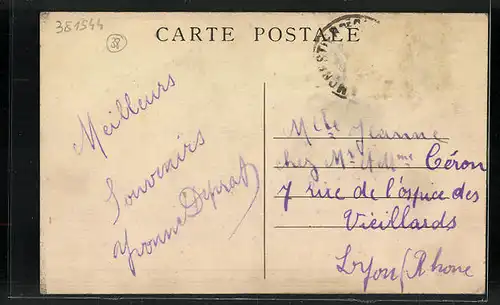 381544
38
CARTE POSTALE
Meilleurs
Souvenirs
Yvonne Deprat
Mlle Jeanne
chez Mr & Mme Céron
7 rue de l'ospice des
Vieillards
Lyon/Rhone